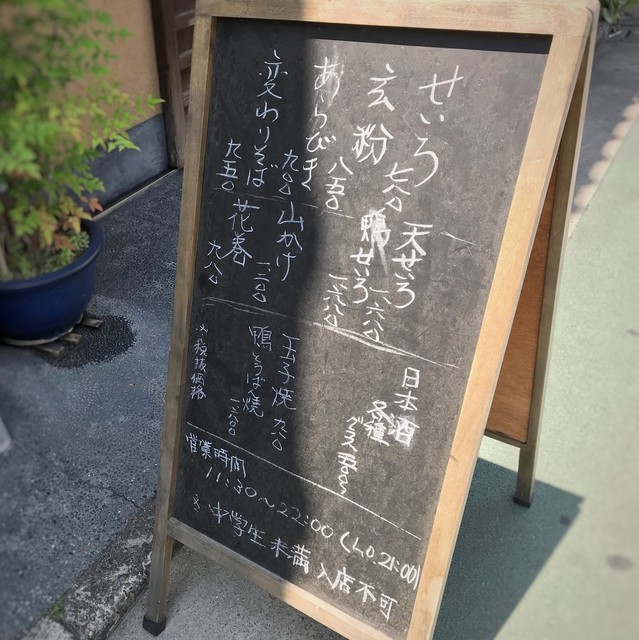 せいろ 七八〇
玄粉 八五〇
あらびき 九〇〇
変わりそば 九五〇
天せろ 一、六八〇
鴨せいろ 一、六八〇
山かけ 一、二〇〇
花巻 九八〇
日本酒
各種
グラス 五〇〇〜
玉子焼 九八〇
鴨とうば焼 一、二〇〇
※税抜価格
営業時間
11:30〜22:00(L.O.21:00)
※中学生未満入店不可